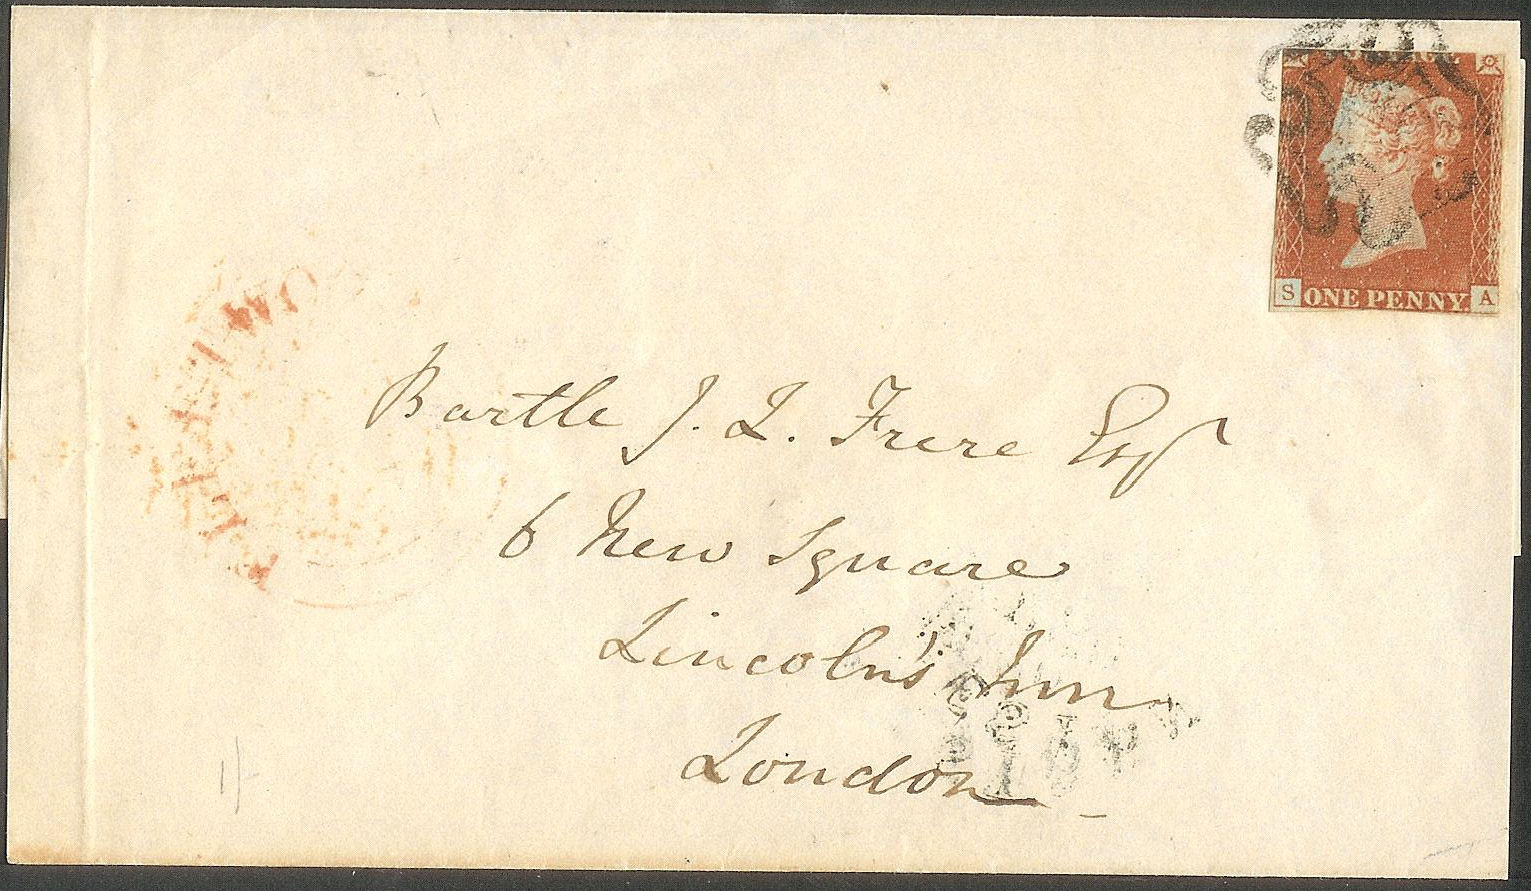 S ONE PENNY. A
Bartle J. L. Frere Esqr
6 New Square
Lincoln's Inn
London
1/-